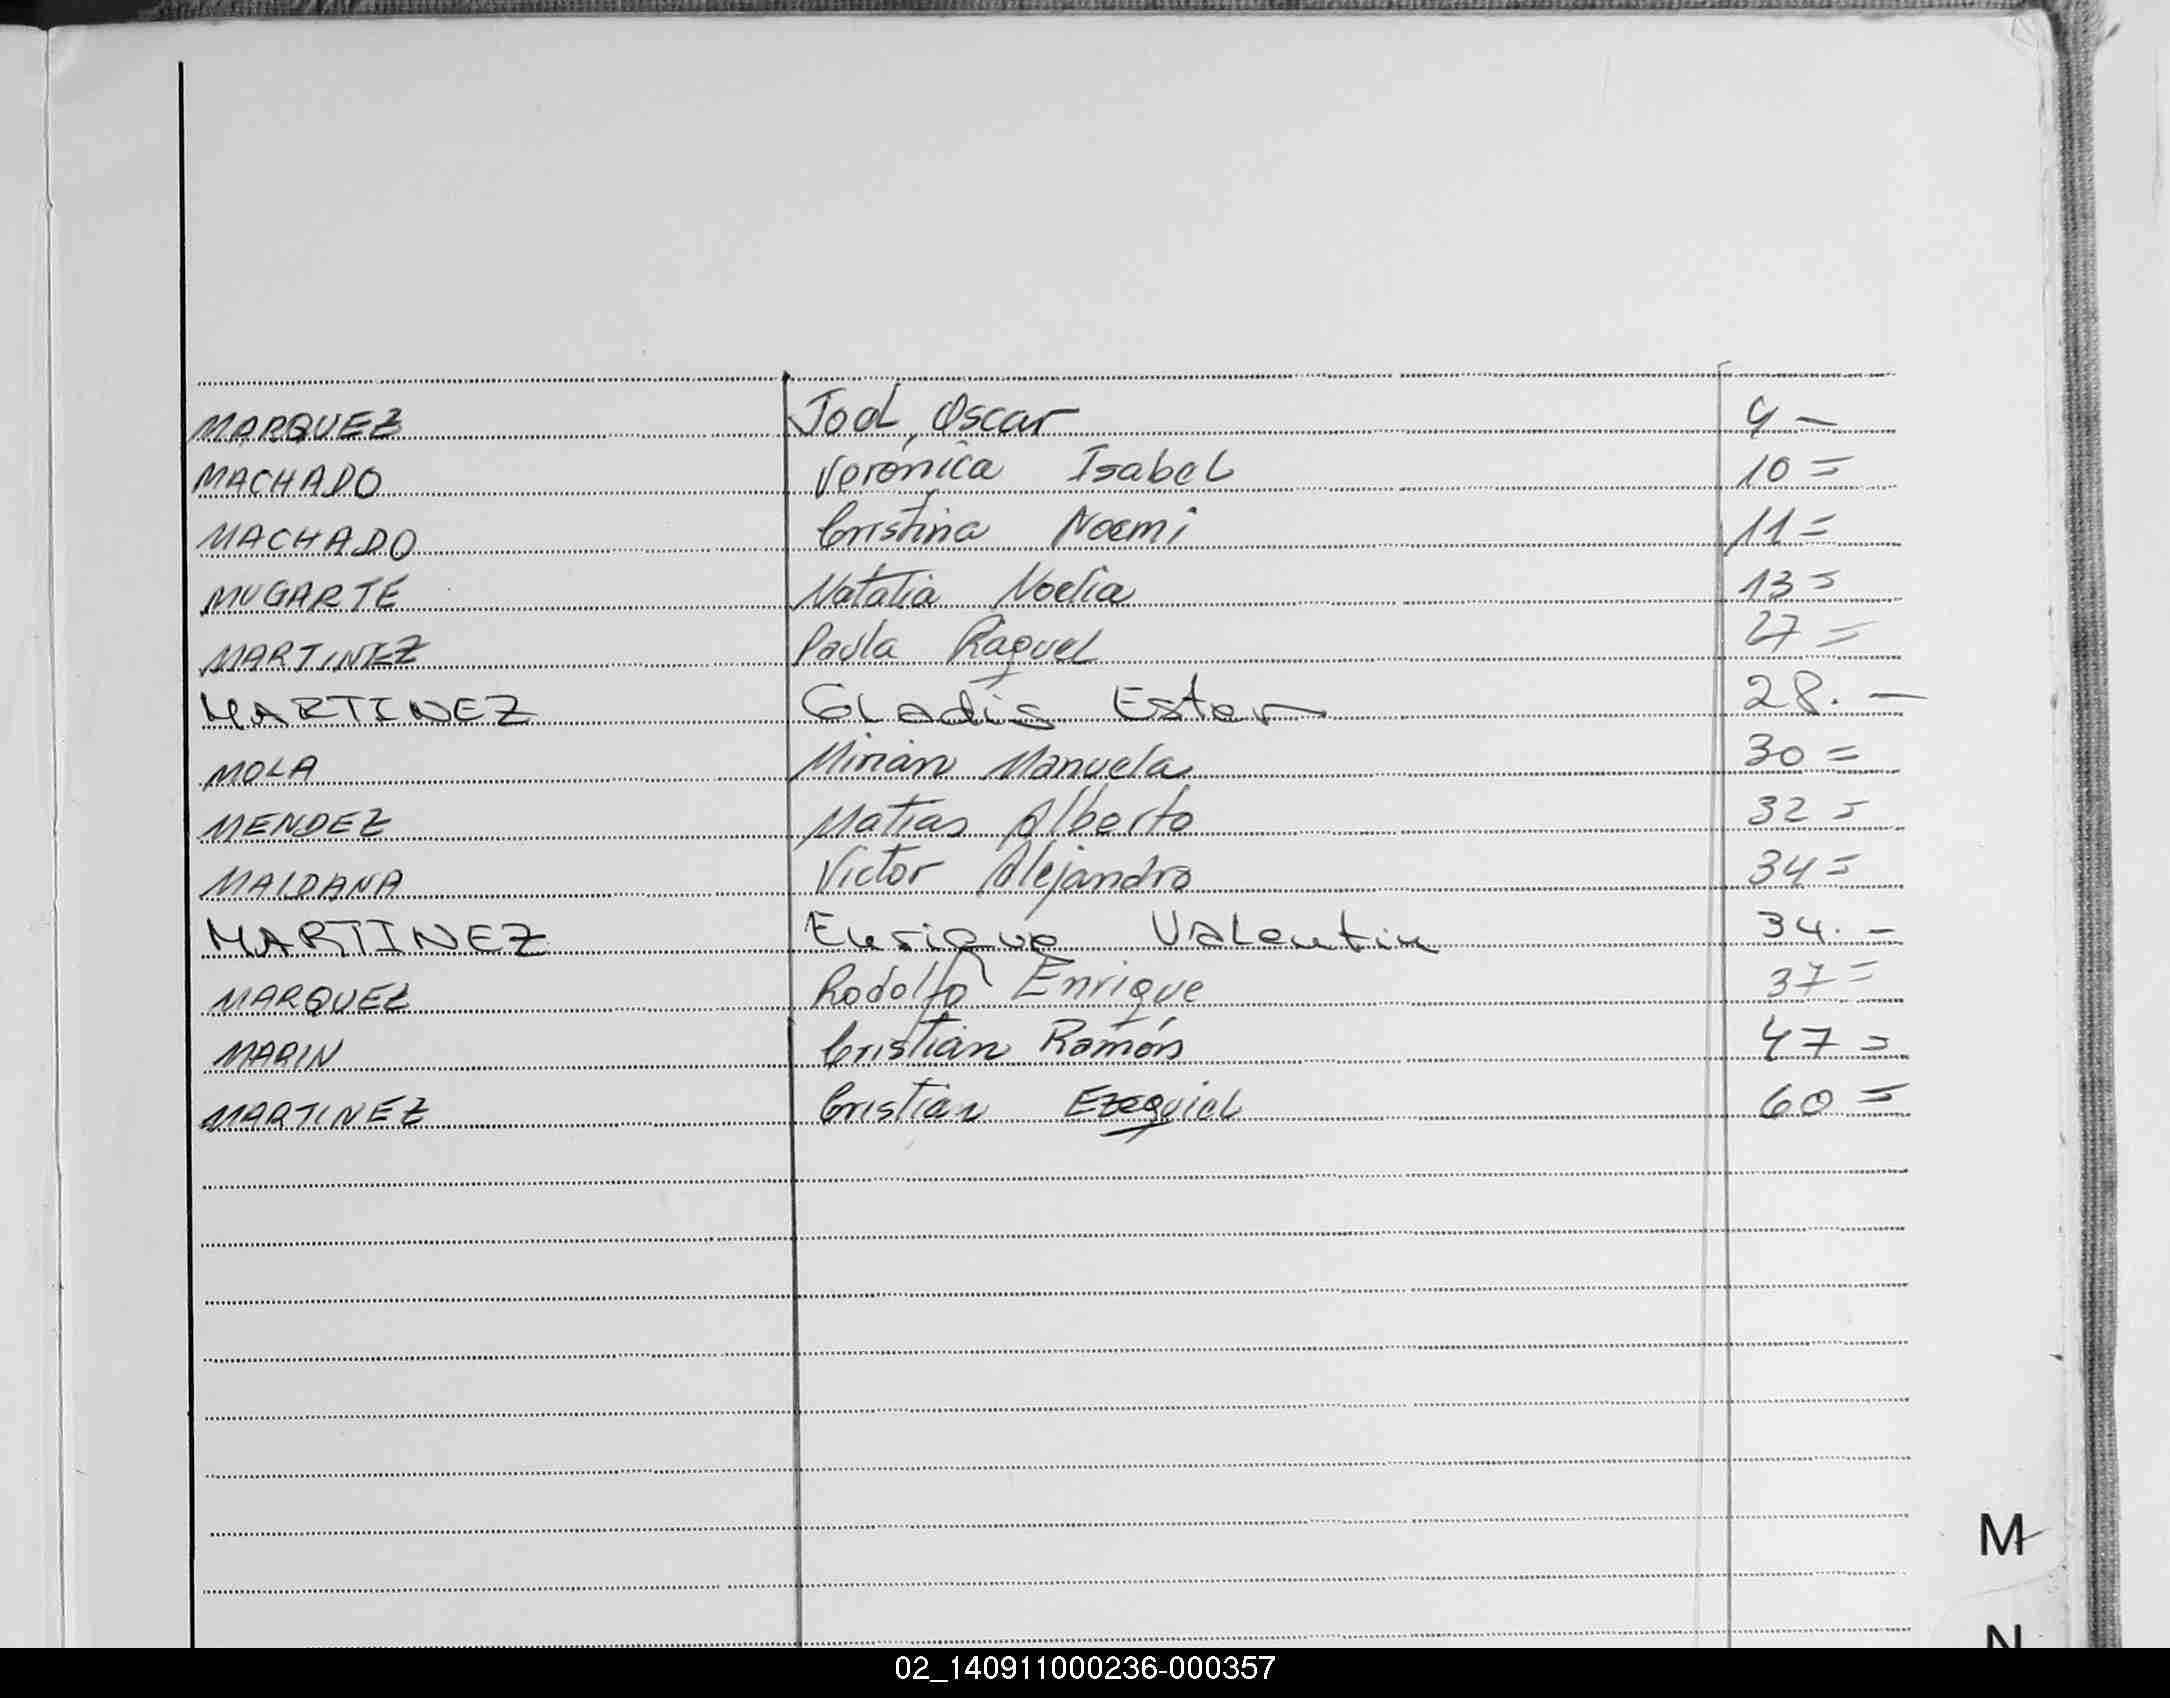 MARQUEZ Joel Oscar 4 —
MACHADO Verónica Isabel 10 =
MACHADO Cristina Noemi 11 =
MUGARTE Natalia Noelia 13 =
MARTINEZ Paula Raquel 27 =
MARTINEZ Gladis Ester 28. —
MOLA Mirian Manuela 30 =
MENDEZ Matias Alberto 32 =
MALDANA Victor Alejandro 34 =
MARTINEZ Enrique Valentin 34. —
MARQUEZ Rodolfo Enrique 37 =
MARIN Cristian Ramón 47 =
MARTINEZ Cristian Ezequiel 60 =
M
N
02_140911000236-000357